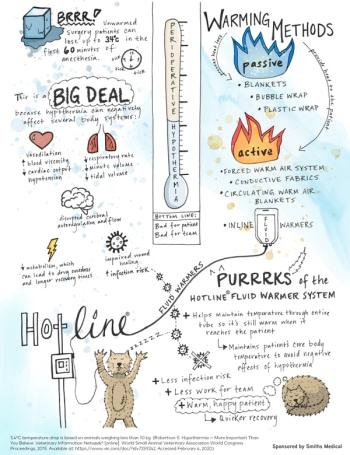 BRRR!
Unwarmed
surgery patients can
lose up to 3.4°C in the
first 60 minutes of
anesthesia.
This is a
BIG DEAL
because hypothermia can negatively
affect several body systems:
vasodilation
↑ blood viscosity
↓ cardiac output
hypotension
↓ respiratory rate
↓ minute volume
↓ tidal volume
disrupted cerebral
autoregulation and flow
↓ metabolism, which
can lead to drug overdoses
and longer recovery times
impaired wound
healing
↑ infection risk
PERIOPERATIVE HYPOTHERMIA
BOTTOM LINE:
Bad for patient
Bad for team
WARMING METHODS
prevent heat loss
passive
provide heat to the patient
• BLANKETS
• BUBBLE WRAP
• PLASTIC WRAP
active
• FORCED WARM AIR SYSTEM
• CONDUCTIVE FABRICS
• CIRCULATING WARM AIR
BLANKETS
• INLINE FLUID WARMERS
FLUID WARMERS
Hotline®
ZZZZZ
PURRRKS of the
HOTLINE® FLUID WARMER SYSTEM
• Helps maintain temperature through entire
tube so it's still warm when it
reaches the patient
Maintains patients core body
temperature to avoid negative
effects of hypothermia
+ Less infection risk
+ Less work for team
+ Warm, happy patient
Quicker recovery
3.4°C temperature drop is based on animals weighing less than 10 kg. (Robertson S. Hypothermia – More Important Than
You Believe. Veterinary Information Network® [online]. World Small Animal Veterinary Association World Congress
Proceedings, 2015. Available at:
Accessed February 6, 2020)
Sponsored by Smiths Medical